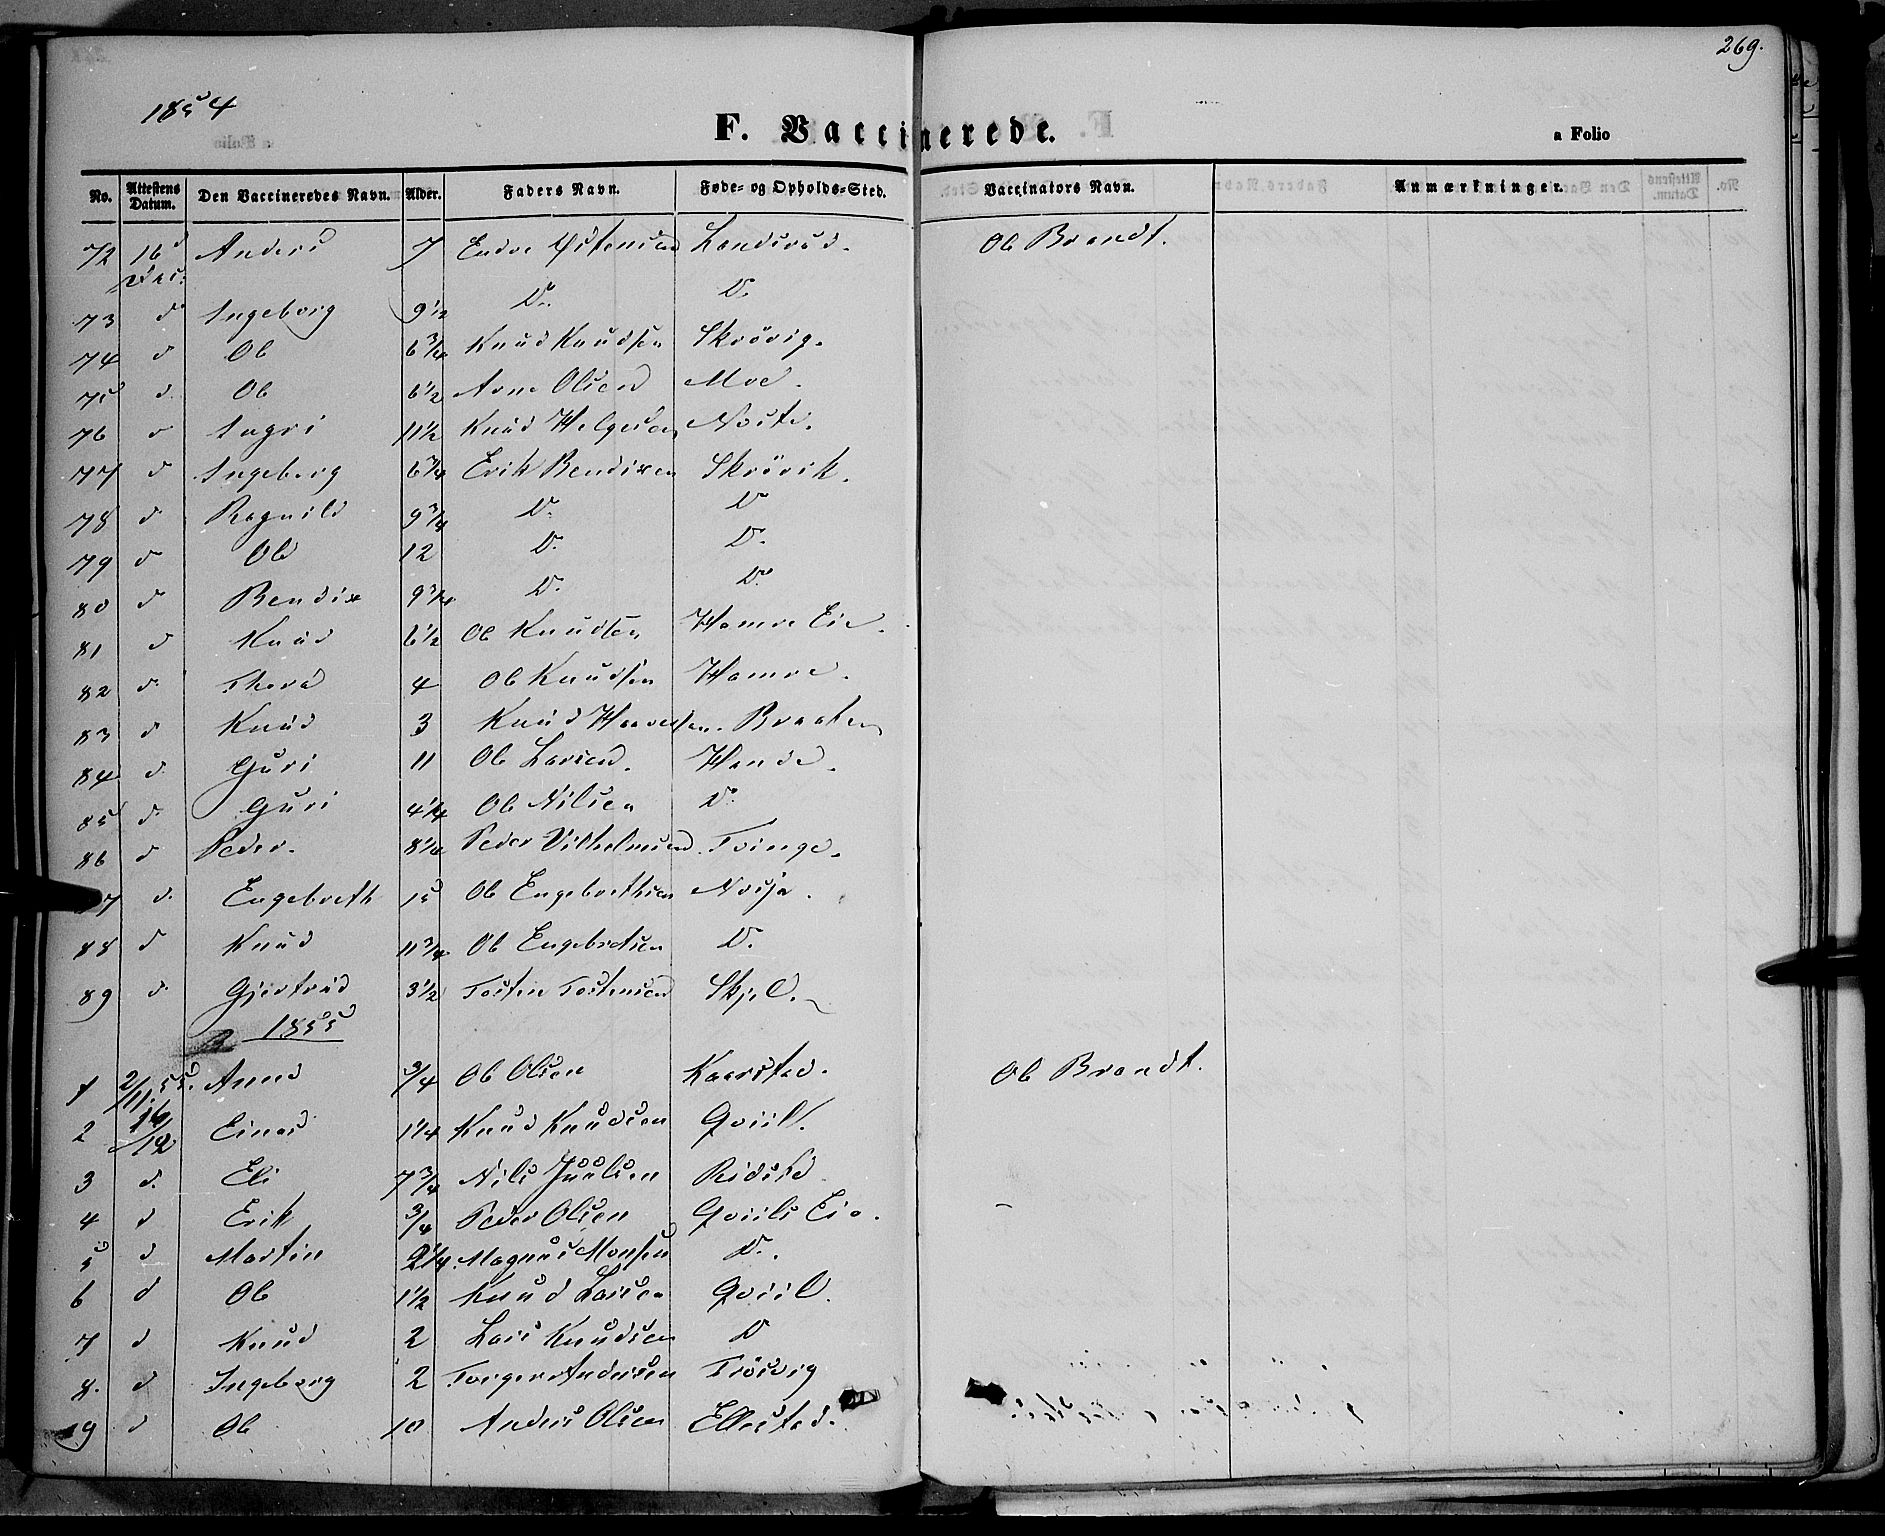 269.
1854
F. Vaccinerede.
a Folio
No. Attestens Datum. Den Vaccineredes Navn. Alder. Faders Navn. Føde- og Opholds-Sted. Vaccinators Navn. Anmærkninger.
72 16 d Anders 7 Endre Østensen Landsrud. Ol Brandt.
Dec:
73 d Ingeborg 9 1/2 Do. Do.
74 d Ol 6 3/4 Knud Knudsen Skrövig.
75 d. Ol 6 1/2 Arne Olsen Moe.
76 d Ingri 11 1/2 Knud Helgesen Noste.
77 d Ingeborg 6 3/4 Erik Bendixen Skrövik.
78 d Ragnild 9 3/4 Do. Do
79 d Ol 12 Do. Do.
80 d Bendix 9 3/4 Do. Do
81 d Knud 6 1/2 Ol Knudsen Hamre Eie.
82 d. Thora 4 Ol Knudsen Hamre.
83 d Knud 3 Knud Haavelsen. Braaten
84 d. Guri 11 Ol Larsen. Hande.
85 d. Guri 4 1/4 Ol Nilsen Do
86 d Peder. 8 1/4 Peder Vilhelmsen. Tvinge.
87 d. Engebreth 15 Ol Engebrethsen Nosja.
88 d Knud 11 3/4 Ol Engebretsen Do.
89 d. Gjertrud 3 1/2 Tosten Tostensen Skjel.
1855
1 2/11 55. Anne 3/4 Ol Olsen Kaarstad. Ol Brandt.
2 16/12 Einar 1 1/4 Knud Knudsen Qviil.
3 d. Eli 7 3/4 Nils Juulsen
4 d Erik 3/4 Peder Olsen Qviils Eie.
5 d Martin 2 1/4 Magnus Monsen Do.
6 d Ol 1 1/2 Knud Larsen Qviil.
7 d Knud 2 Lars Knudsen Do
8. d Ingeborg 2 Torger Andersen
9 d Ol 10 Anders Olsen Ellestad.